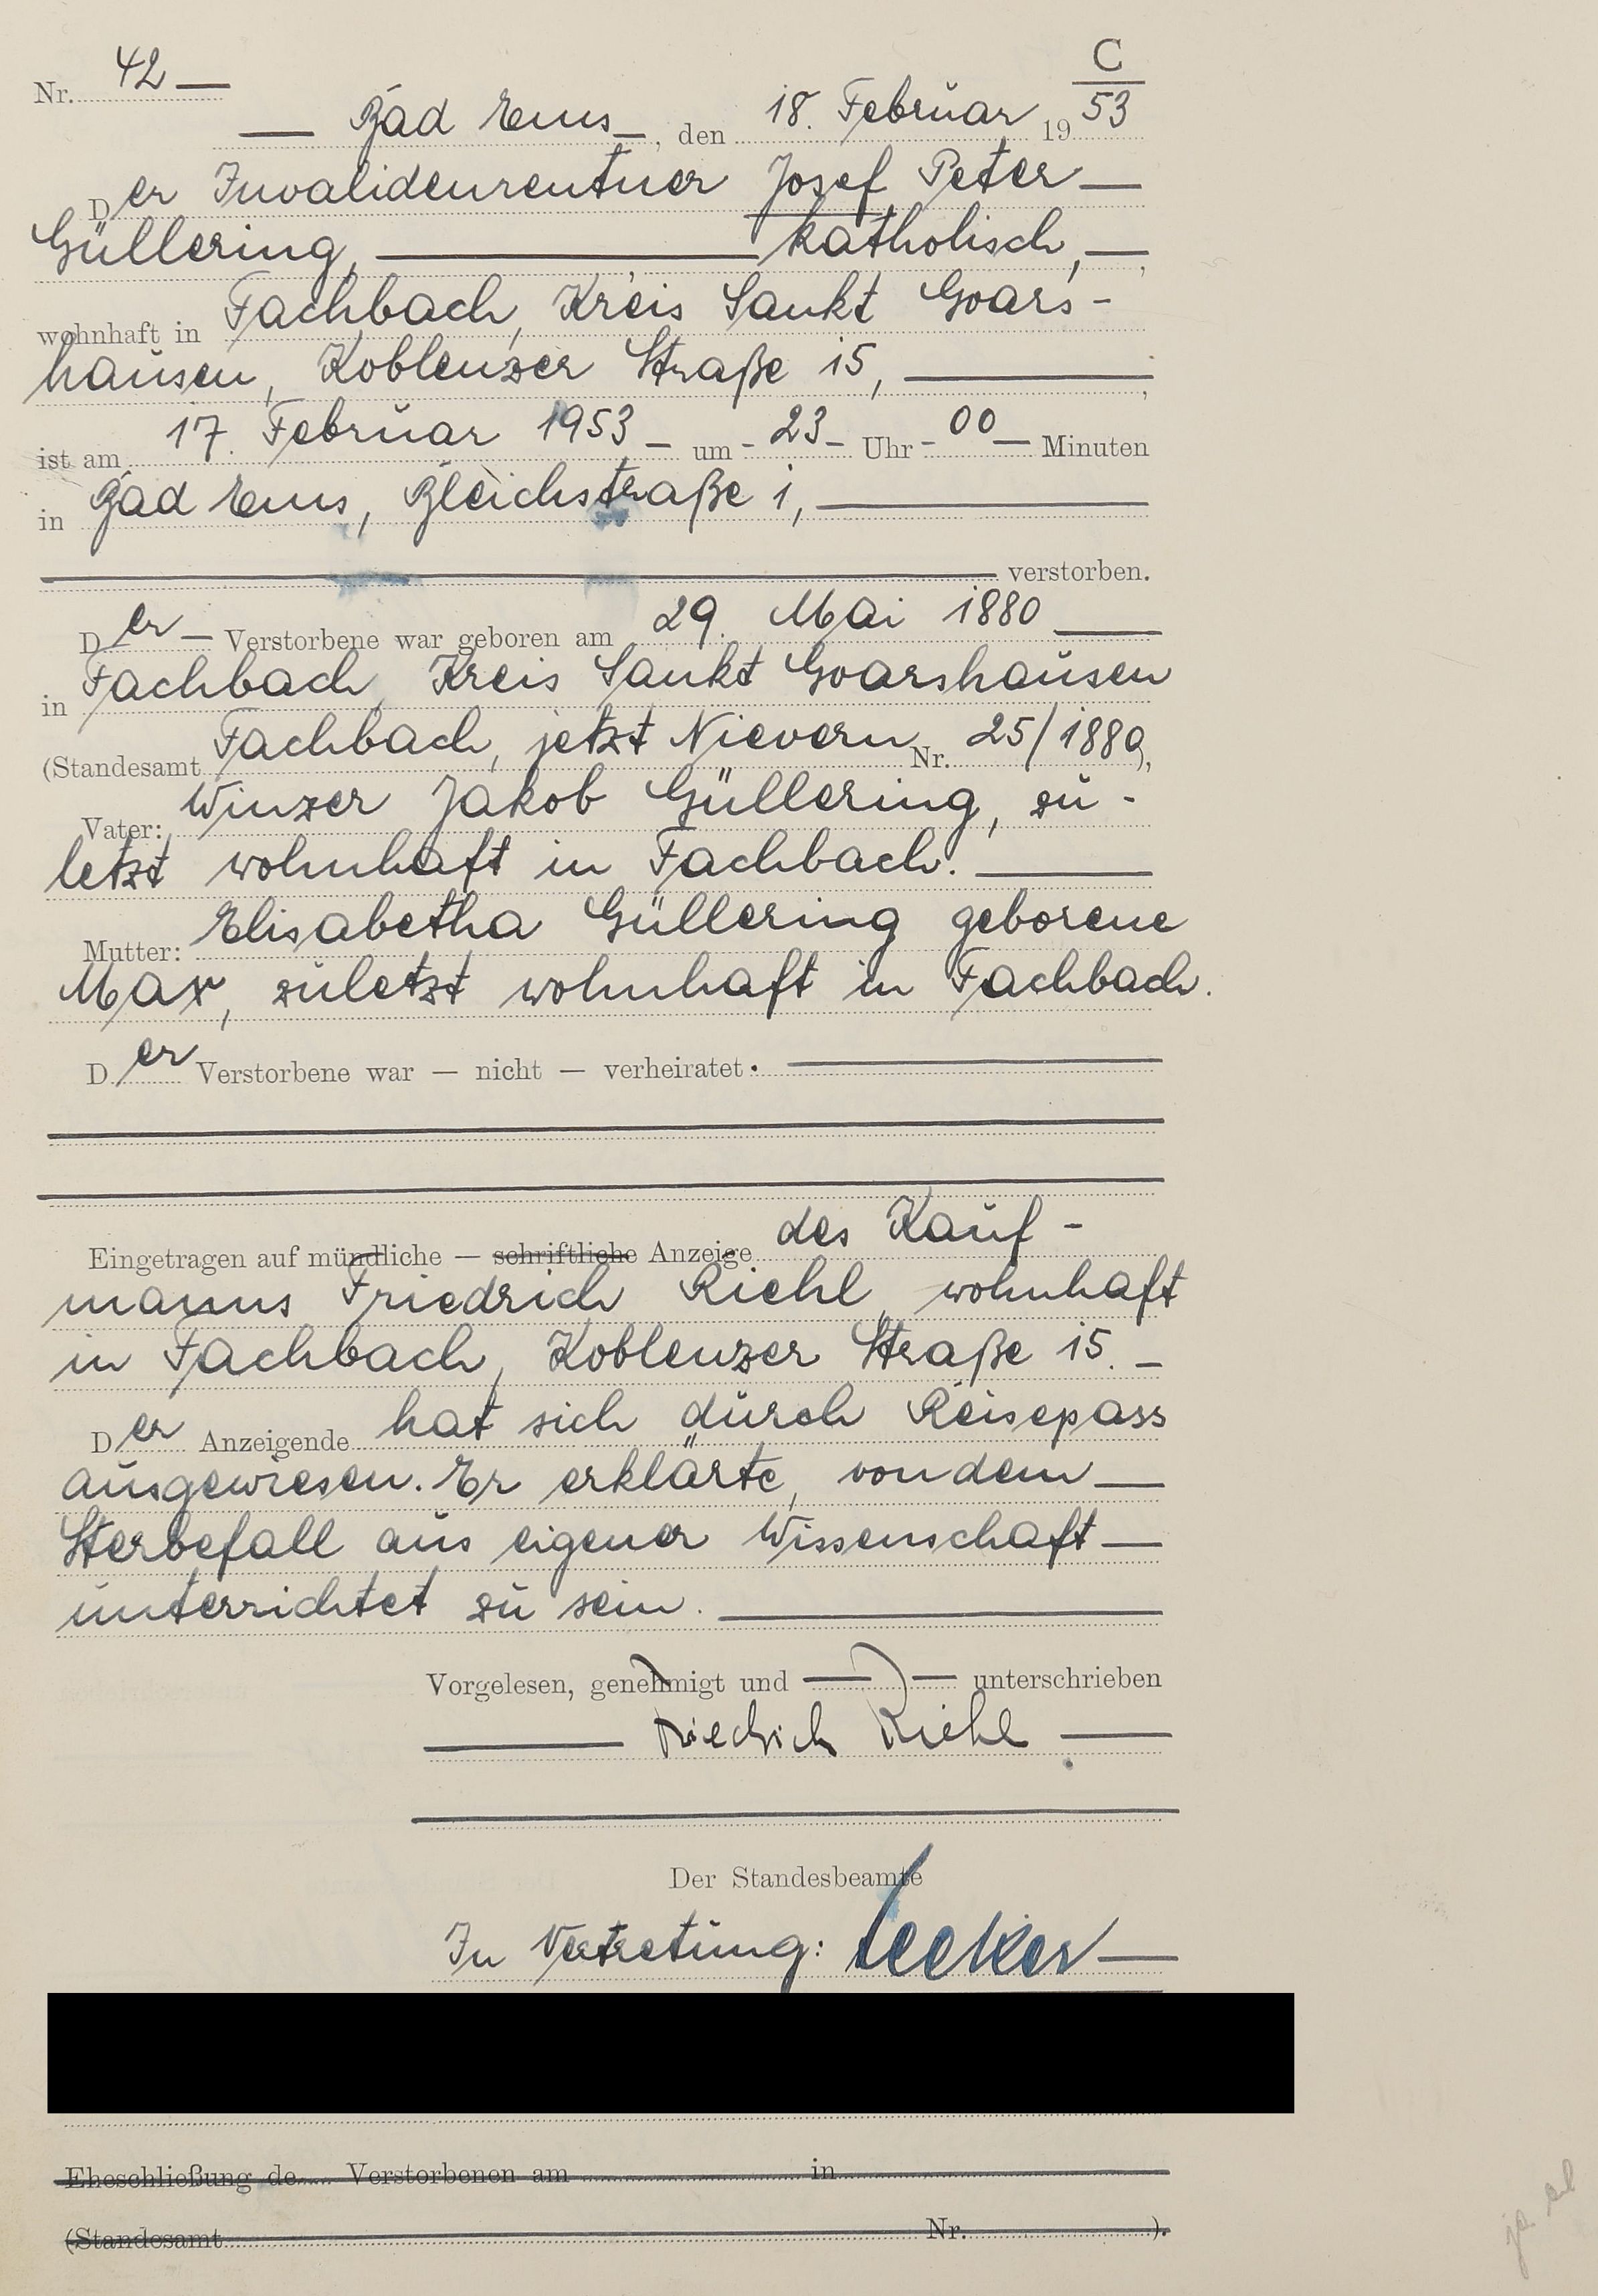 C
Nr. 42 —
— Bad Ems —, den 18. Februar 1953
Der Invalidenrentner Josef Peter —
Güllering, — katholisch, —,
wohnhaft in Fachbach, Kreis Sankt Goars-
hausen, Koblenzer Straße 15, —;
ist am 17. Februar 1953 — um - 23 - Uhr - 00 — Minuten
in Bad Ems, Bleichstraße 1, —
— verstorben.
Der — Verstorbene war geboren am 29. Mai 1880 —
in Fachbach, Kreis Sankt Goarshausen
(Standesamt Fachbach, jetzt Nievern Nr. 25/1880),
Vater: Winzer Jakob Güllering, zu-
letzt wohnhaft in Fachbach. —
Mutter: Elisabetha Güllering geborene
Max, zuletzt wohnhaft in Fachbach.
Der Verstorbene war — nicht — verheiratet. —
Eingetragen auf mündliche — schriftliche Anzeige des Kauf-
manns Friedrich Riehl, wohnhaft
in Fachbach, Koblenzer Straße 15. —
Der Anzeigende hat sich durch Reisepass
ausgewiesen. Er erklärte, von dem —
Sterbefall aus eigener Wissenschaft —
unterrichtet zu sein. —
Vorgelesen, genehmigt und — — unterschrieben
— Friedrich Riehl —
Der Standesbeamte
In Vertretung: —
Eheschließung de Verstorbenen am in
(Standesamt Nr. ).